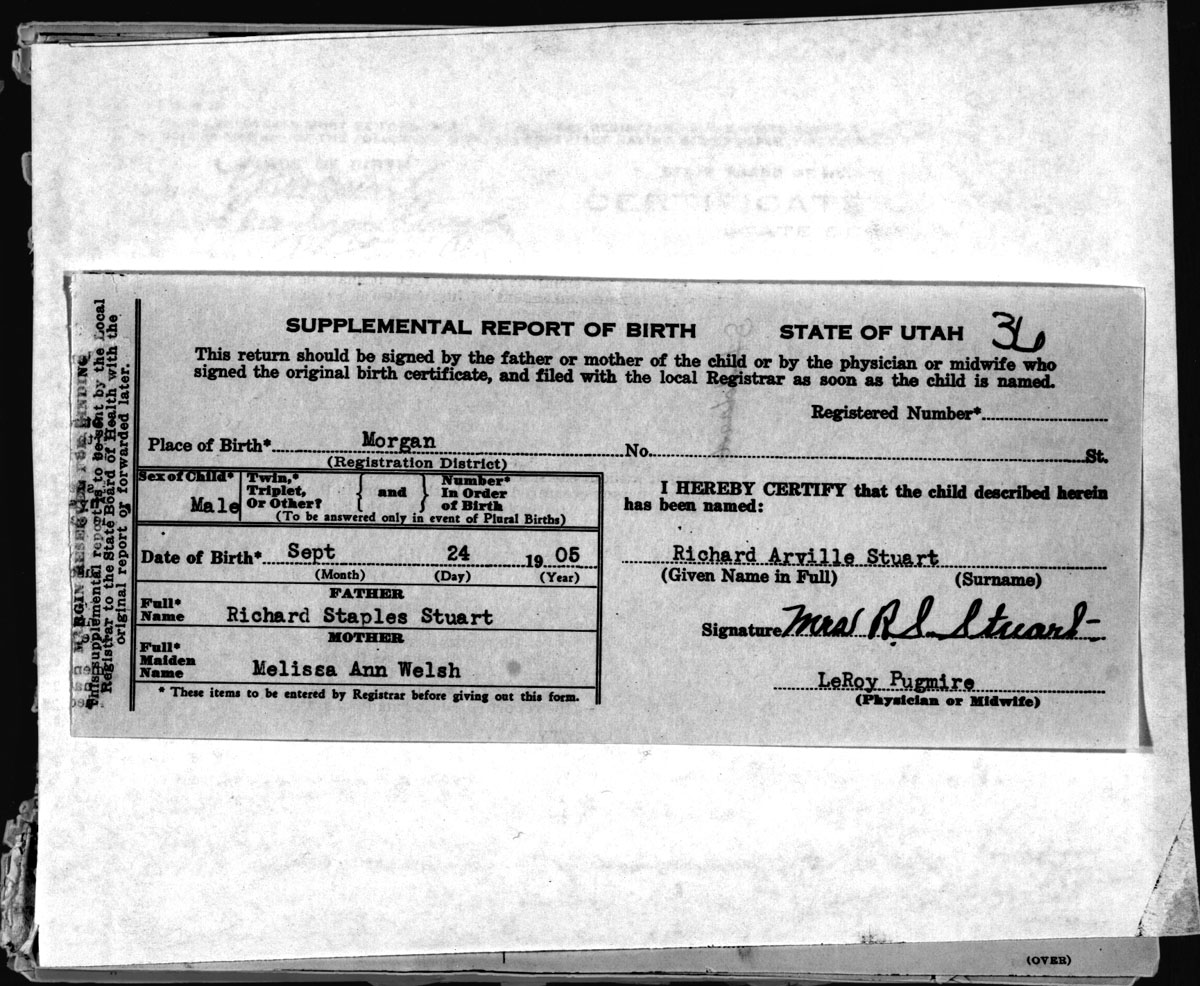 SUPPLEMENTAL REPORT OF BIRTH STATE OF UTAH 36
This return should be signed by the father or mother of the child or by the physician or midwife who
signed the original birth certificate, and filed with the local Registrar as soon as the child is named.
Registered Number*
Place of Birth* Morgan No. St.
(Registration District)
Sex of Child* Male
Twin,* Triplet, Or Other? { and } Number* In Order of Birth
(To be answered only in event of Plural Births)
Date of Birth* Sept 24 1905
(Month) (Day) (Year)
FATHER
Full* Name Richard Staples Stuart
MOTHER
Full* Maiden Name Melissa Ann Welsh
* These items to be entered by Registrar before giving out this form.
I HEREBY CERTIFY that the child described herein
has been named:
Richard Arville Stuart
(Given Name in Full) (Surname)
Signature Mrs R. S. Stuart
LeRoy Pugmire
(Physician or Midwife)
MARGIN RESERVED FOR BINDING
This supplemental report is to be sent by the Local
Registrar to the State Board of Health with the
original report or forwarded later.
(OVER)